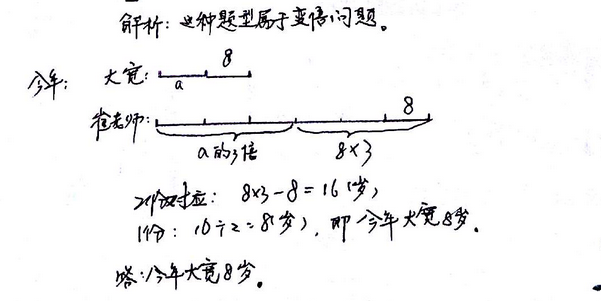 解析：这种题型属于变倍问题。
8
今年：大宽：
a
8
崔老师：
a的3倍 8×3
2份对应：8×3-8=16(岁)
1份：16÷2=8(岁)，即今年大宽8岁。
答：今年大宽8岁。